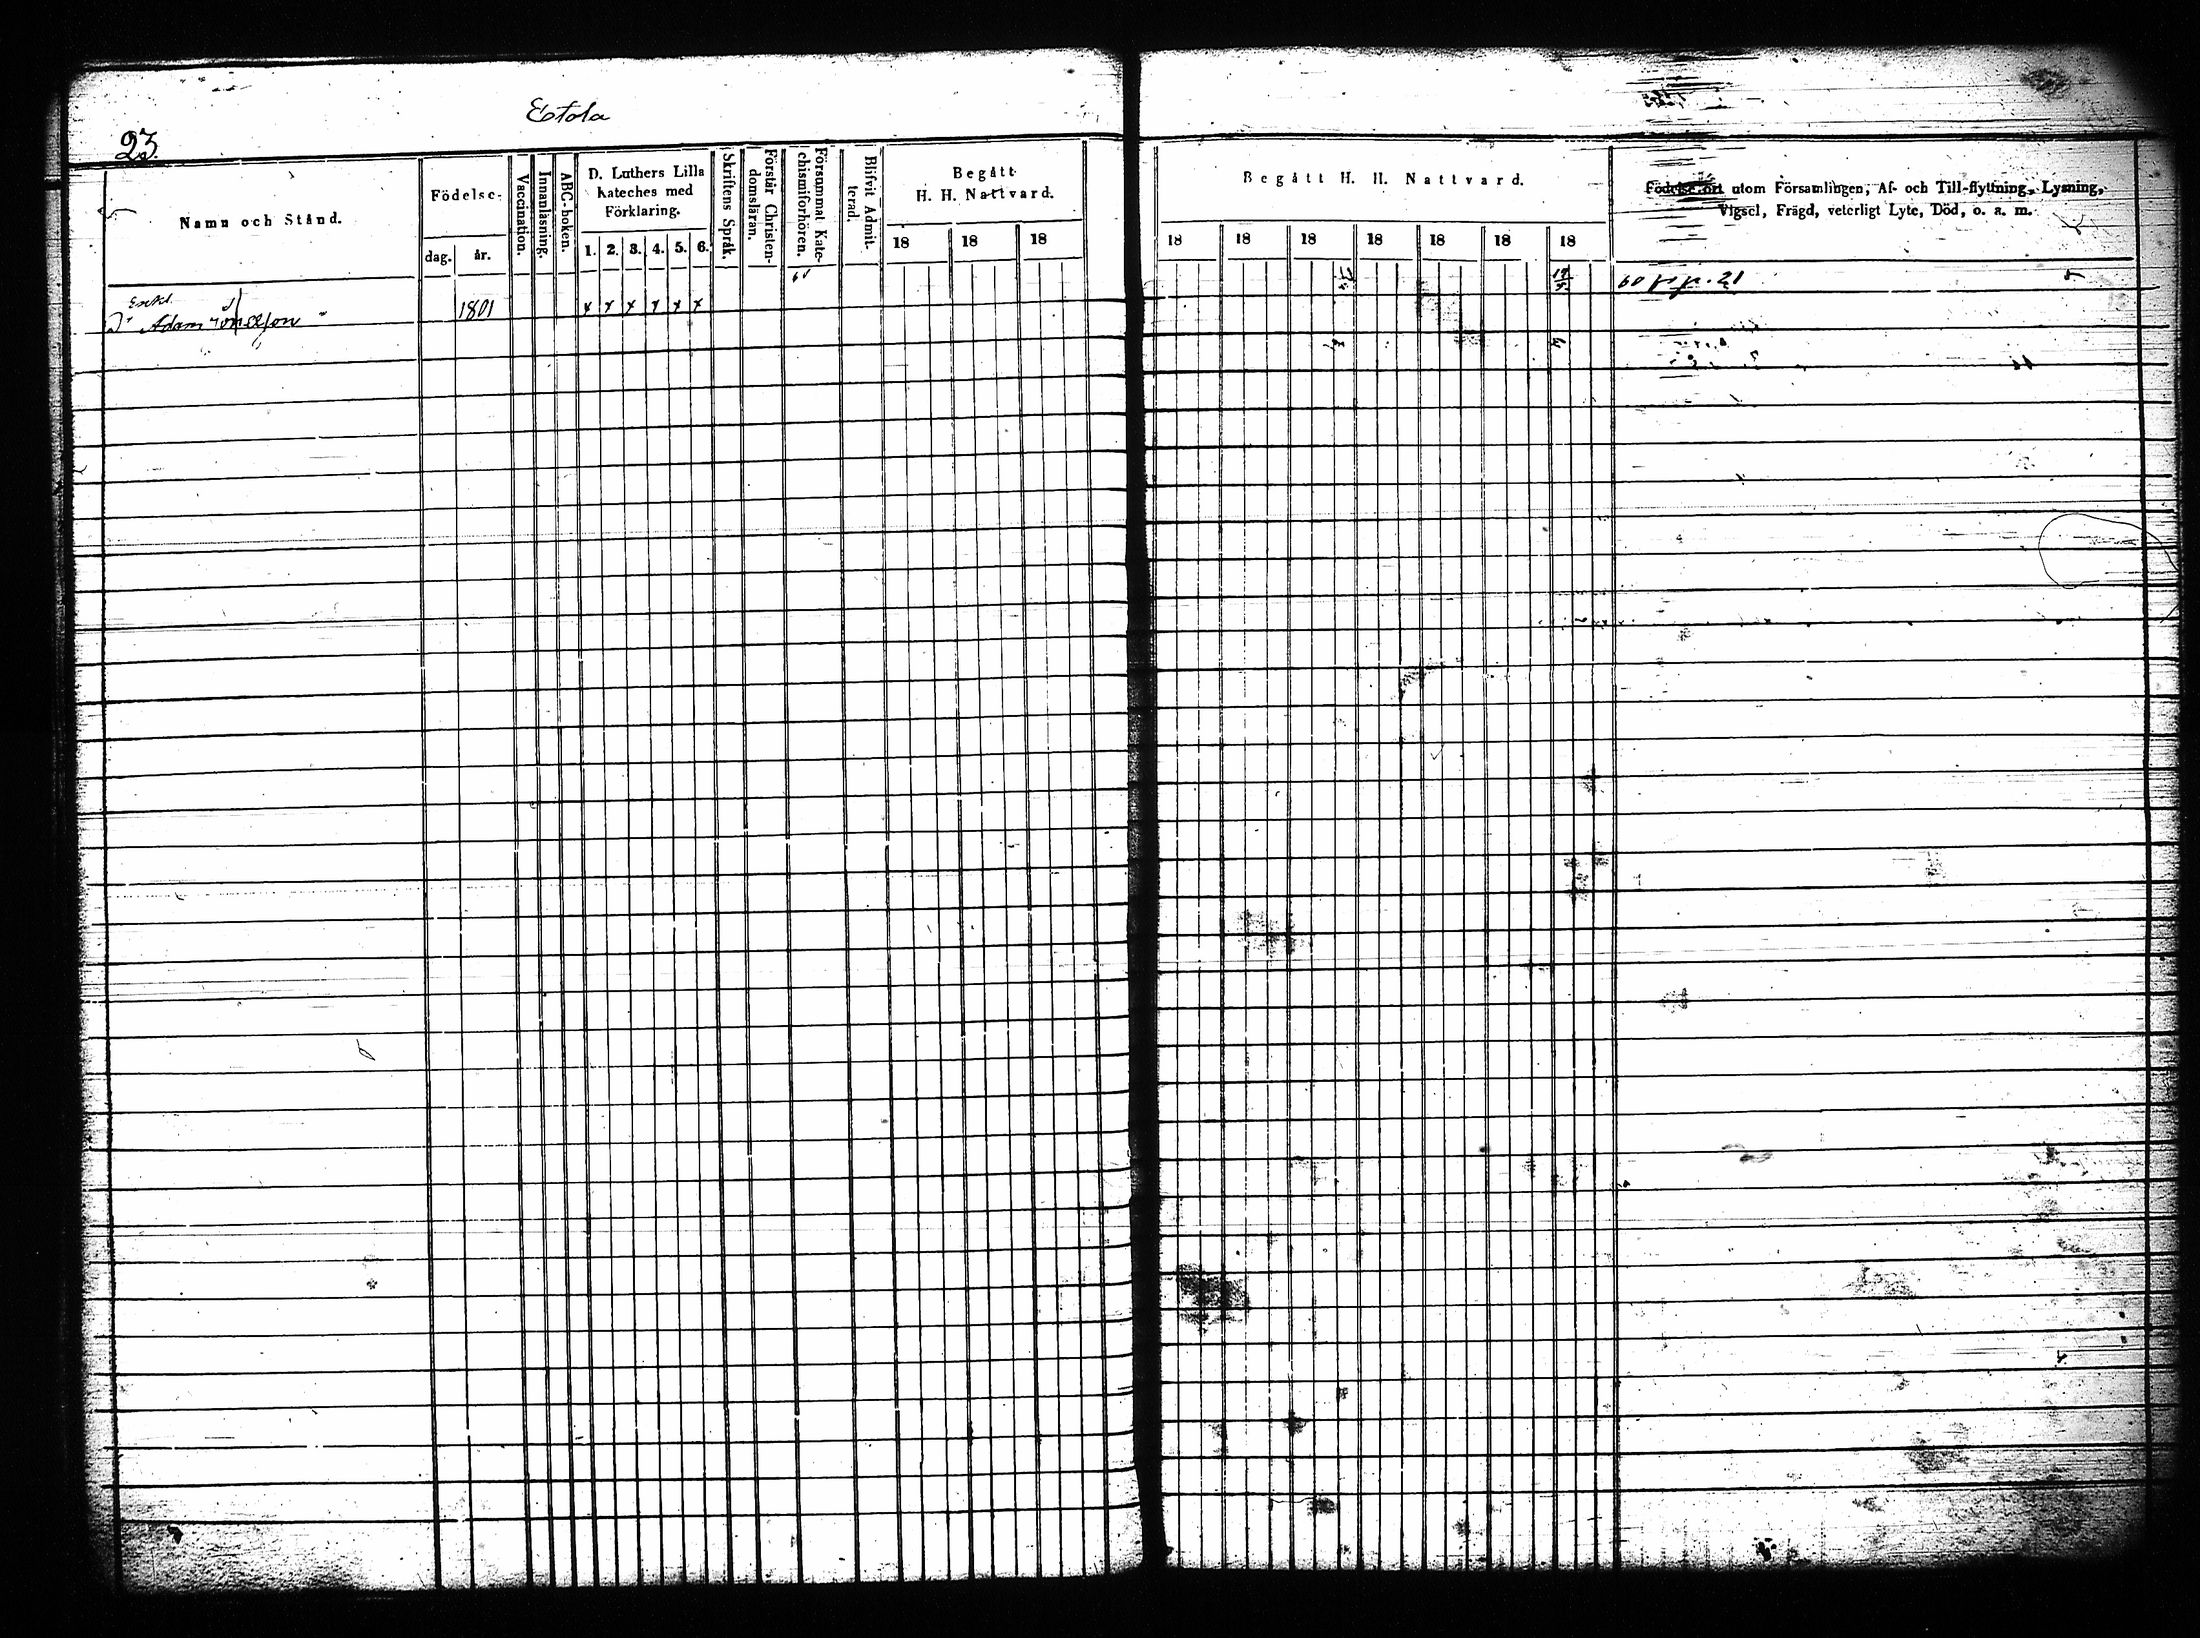 23.
Namn och Stånd.
Födelse-
dag.
år.
Vaccination.
Innanläsning.
ABC-boken.
D. Luthers Lilla
Kateches med
Förklaring.
1. 2. 3. 4. 5. 6.
Skriftens Språk.
Förstår Christen-
domsläran.
Försummat Kate-
chismiförhören.
Blifvit Admit-
terad.
Begått
H. H. Nattvard.
18 18 18
Begått H. H. Nattvard.
18 18 18 18 18 18 18
Födelse-ort utom Församlingen, Af- och Till-flyttning, Lysning,
Vigsel, Frägd, veterligt Lyte, Död, o. a. m.
Adam
1801
x x x x x x